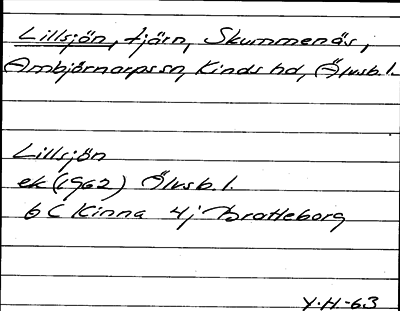 Lillsjön, tjärn, Skummenäs,
Ambjörnarps sn, Kinds hd, Älvsb. l.
Lillsjön
ek (1962) Älvsb. l.
6 C Kinna 4j Bratteborg
Y.H-63